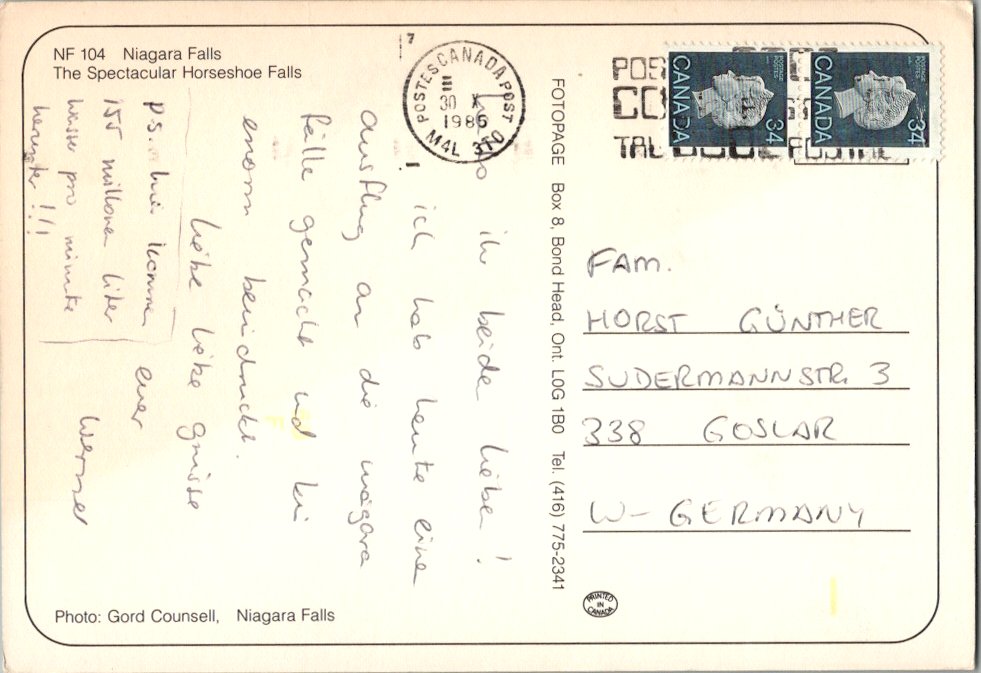 NF 104 Niagara Falls
The Spectacular Horseshoe Falls
ihr beide liebe!
ich hab heute einen
ausflug an die niagara
fälle gemacht und bin
enorm beindruckt.
liebe liebe grüsse
euer
Werner
p.s. hier kommen
155 millionen liter
wasser pro minute
herunter!!!
Photo: Gord Counsell, Niagara Falls
FOTOPAGE Box 8, Bond Head, Ont. L0G 1B0 Tel. (416) 775-2341
POSTES CANADA POST
III
30 X
1986
M4L 3T0
CANADA
POSTAGE POSTES
34
CANADA
POSTAGE POSTES
34
FAM.
HORST GÜNTHER
SUDERMANNSTR. 3
338 GOSLAR
W-GERMANY
PRINTED
IN
CANADA